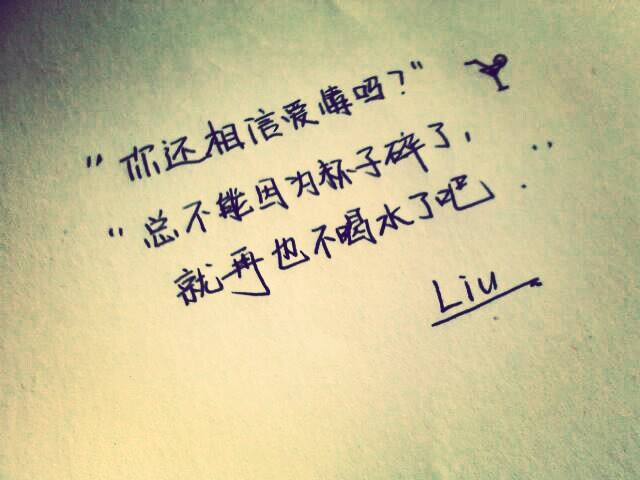 "你还相信爱情吗?"
"总不能因为杯子碎了,
就再也不喝水了吧."
Liu